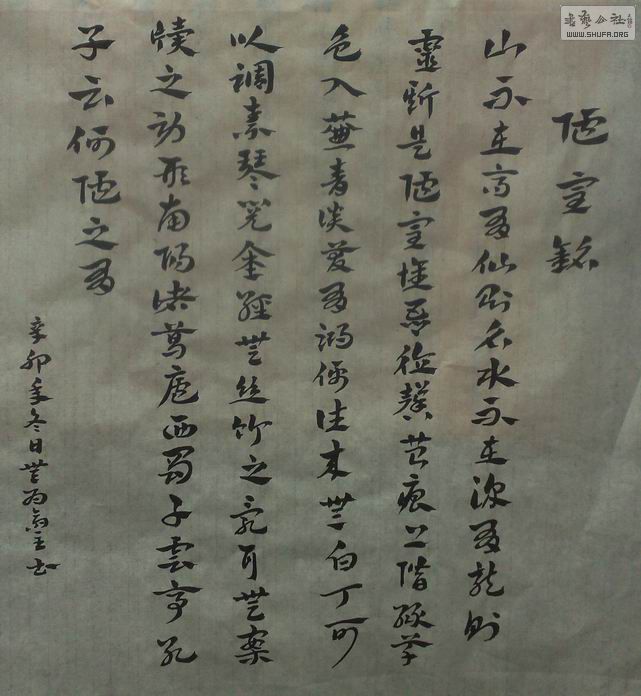 書藝公社
WWW.SHUFA.ORG
陋室銘
山不在高有仙則名水不在深有龍則
靈斯是陋室惟吾德馨苔痕上階綠草
色入簾青談笑有鴻儒往來無白丁可
以調素琴閱金經無絲竹之亂耳無案
牘之勞形南陽諸葛廬西蜀子雲亭孔
子云何陋之有
辛卯年冬日無為主書